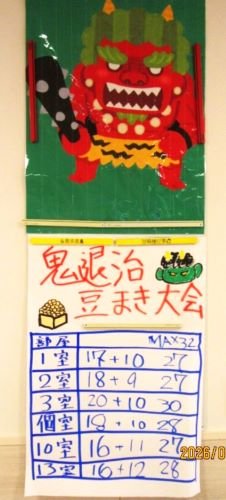 鬼退治
豆まき大会
部屋 MAX32
1室 17+10 27
2室 18+9 27
3室 20+10 30
個室 18+10 28
10室 16+11 27
13室 16+12 28
2026/0